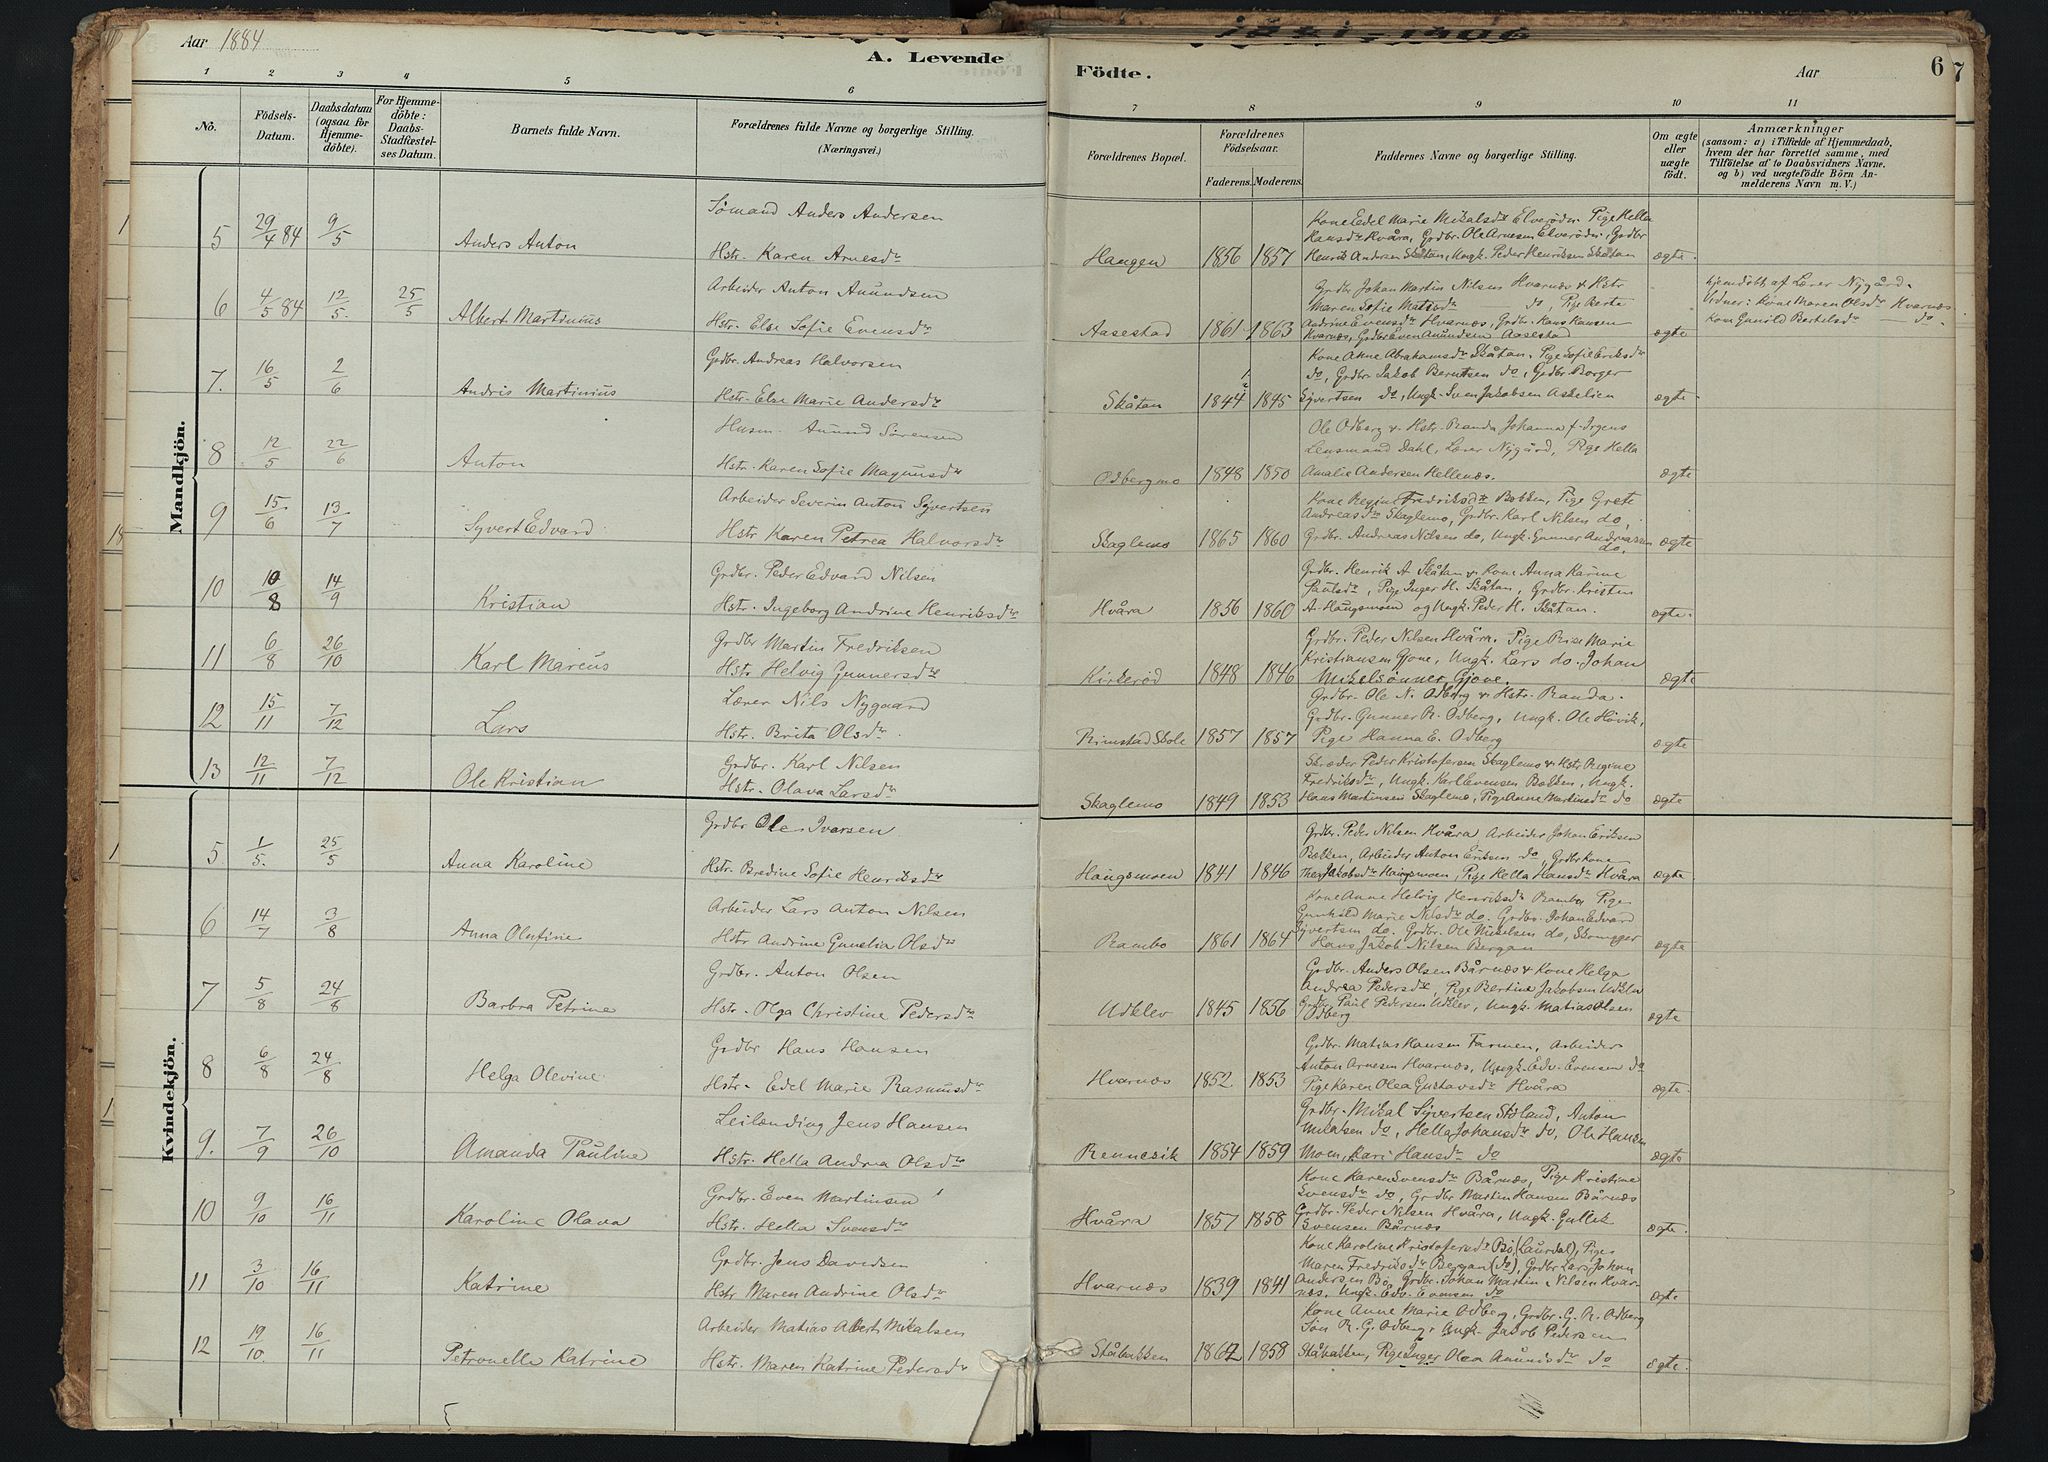 Aar 1884
A. Levende
Födte.
Aar
6
7
1 2 3 4 5 6
7 8 9 10 11
No.
Födsels-
Datum.
Daabsdatum
(ogsaa for
Hjemme-
döbte).
For Hjemme-
döbte:
Daabs-
Stadfæstel-
ses Datum.
Barnets fulde Navn.
Forældrenes fulde Navne og borgerlige Stilling.
(Næringsvei.)
Forældrenes Bopæl.
Forældrenes
Födselsaar.
Faderens. Moderens.
Faddernes Navne og borgerlige Stilling.
Om ægte
eller
uægte
födt.
Anmærkninger
(saasom: a) i Tilfælde af Hjemmedaab,
hvem der har forrettet samme, med
Tilföielse af to Daabsvidners Navne.
og b) ved uægtefödte Börn An-
melderens Navn m. V.)
Mandkjön.
5 29/4 84 9/5 Anders Anton
Sømand Anders Andersen
Hstr. Karen Arnesdtr
Haugen 1856 1857
Kone Edel Marie Mikalsdtr Elverøder. Pige Hella
Hansdtr Hvåra, Grdbr. Ole Arnesen Elverøder, Grdbr
Henrik Andersen Skåtan, Ungk. Peder Henriksen Skåtan
ægte
6 4/5 84 12/5 25/5 Albert Martinius
Arbeider Anton Amundsen
Hstr. Else Sofie Evensdtr
Aasestad 1861 1863
Grdbr Johan Martin Nilsen Hvarnæs & Hstr
Maren Sofie Matsdtr do, Pige Berte
Andrine Evensdtr Hvarnæs, Grdbr. Hans Hansen
Hvarnæs, Grdbr Even Amundsen Aasestad
ægte
Hjemdöbt af Lærer Nygård.
Vidner: Kone Maren Olsdtr Hvarnæs
Kone Gunild Bertelsdtr do
7. 16/5 2/6 Andris Martinius
Grdbr. Andreas Halvorsen
Hstr. Else Marie Andersdtr
Skåtan 1844 1845
Kone Anne Abrahamsdtr Skåtan. Pige Sofie Eriksdtr
do, Grdbr. Jakob Berntsen do, Grdbr. Borger
Syvertsen do, Ungk. Sven Jakobsen Askelien
ægte
8 12/5 22/6 Anton
Husm. Amund Sörensen
Hstr. Karen Sofie Magnusdtr
Odbergmo 1848 1850
Ole Odberg & Hstr. Randa Johanna f. Irgens
Lensmand Dahl, Lærer Nygård, Pige Hella
Amalie Andersen Hellenæs.
ægte
9 15/6 13/7 Syvert Edvard
Arbeider Severin Anton Syvertsen
Hstr Karen Petrea Halvorsdtr
Skaglemo 1865 1860
Kone Regine Fredriksdtr Bakken, Pige Grete
Andreasdtr Skaglemo, Grdbr. Karl Nilsen do,
Grdbr. Andreas Nilsen do, Ungk. Gunner Andreassen
do.
ægte
10 10/8 14/9 Kristian
Grdbr. Peder Edvard Nilsen
Hstr. Ingeborg Andrine Henriksdtr
Hvåra 1856 1860
Grdbr. Henrik A. Skåtan & Kone Anna Karine
Paulsdtr, Pige Inger H. Skåtan, Grdbr. Kristen
A. Haugsmoen og Ungk. Peder H. Skåtan.
ægte
11 6/8 26/10 Karl Marcus
Grdbr Martin Fredriksen
Hstr Helvig Gunnersdtr
Kirkerød 1848 1846
Grdbr. Peder Nilsen Hvåra. Pige Rise Marie
Kristiansen Gjone, Ungk. Lars do. Johan
Mikelsönner Gjone.
ægte
12 15/11 7/12 Lars
Lærer Nils Nygaard
Hstr. Brita Olsdtr
Rimstad Skole 1857 1857
Grdbr. Ole N. Odberg & Hstr. Randa.
Grdbr. Gunner R. Odberg, Ungk. Ole Hövik,
Pige Hanna E. Odberg
ægte
13 12/11 7/12 Ole Kristian
Grdbr. Karl Nilsen
Hstr. Olava Larsdtr
Skaglemo 1849 1853
Skræder Peder Kristofersen Skaglemo & Hstr Regine
Fredriksdtr, Ungk. Karl Evensen Bakken, Ungk.
Hans Martinsen Skaglemo, Pige Anne Martinsdtr do
ægte
Kvindekjön.
5 1/5. 25/5 Anna Karoline
Grdbr Ole Ivarsen
Hstr. Bredine Sofie Henriksdtr
Haugsmoen 1841 1846
Grdbr. Peder Nilsen Hvåra Arbeider Johan Eriksen
Bakken, Arbeider Anton Eriksen do, Grdbrkone
Thea Jakobsdtr Haugsmoen, Pige Hella Hansdtr Hvåra
ægte
6 14/7 3/8 Anna Olufine
Arbeider Lars Anton Nilsen
Hstr Andrine Gunelia Olsdtr
Rambo 1861 1864
Kone Anne Helvig Henriksdtr Rambo, Pige
Gunhild Marie Nilsdtr do. Grdbr. Johan Edvard
Syvertsen do. Grdbr. Ole Mikelsen do,
Hans Jakob Nilsen Bergan
ægte
7 5/8 24/8 Barbra Petrine
Grdbr. Anton Olsen
Hstr. Olga Christine Pedersdtr
Udklev 1845 1856
Grdbr. Anders Olsen Bårnæs & Kone Helga
Andrea Pedersdtr, Pige Bertine Jakobsen Udklev
Grdbr. Paul Pedersen Udklev, Ungk. Matias Olsen
Odberg
ægte
8 6/8 24/8 Helga Olevine
Grdbr Hans Hansen
Hstr. Edel Marie Rasmusdtr
Hvarnæs 1852 1853
Grdbr. Matias Hansen Farmen, Arbeider
Anton Arnesen Hvarnæs, Ungk. Edv. Evensen do
Pige Karen Olea Gustavsdtr Hvåra
ægte
9. 7/9 26/10 Amanda Pauline
Leilænding Jens Hansen
Hstr. Hella Andrea Olsdtr
Rennesik 1854 1859
Grdbr. Mikal Syvertsen Stöland, Anton
Mikalsen do, Hella Johansdtr do, Ole Hansen
Moen, Kari Hansdtr do
ægte
10 9/10 16/11 Karoline Olava
Grdbr. Even Martinsen
Hstr. Hella Svensdtr
Hvåra 1857 1858
Kone Karen Svensdtr Bårnæs, Pige Kristine
Svensdtr do, Grdbr Martin Hansen Bårnæs
Grdbr. Peder Nilsen Hvåra, Ungk. Gullik
Svensen Bårnæs
ægte
11 3/10 16/11 Katrine
Grdbr. Jens Davidsen
Hstr Maren Andrine Olsdtr
Hvarnæs 1839 1841
Kone Karoline Kristofersdtr Bö, (Laurdal), Pige
Maren Fredriksdtr Bergan (do), Grdbr Lars Johan
Andersen Bö, Grdbr. Johan Martin Nilsen Hvar-
næs, Ungk. Edv. Evensen do
ægte
12 19/10. 16/11 Petronelle Katrine
Arbeider Matias Albert Mikalsen
Hstr. Maren Katrine Pedersdtr
Ståbakken 1862 1858
Kone Anne Marie Odberg, Grdbr. G. R. Odberg
Sön R. G. Odberg, Ungk. Jakob Pedersen
Ståbakken, Pige Inger Olea Amundsdtr do
ægte